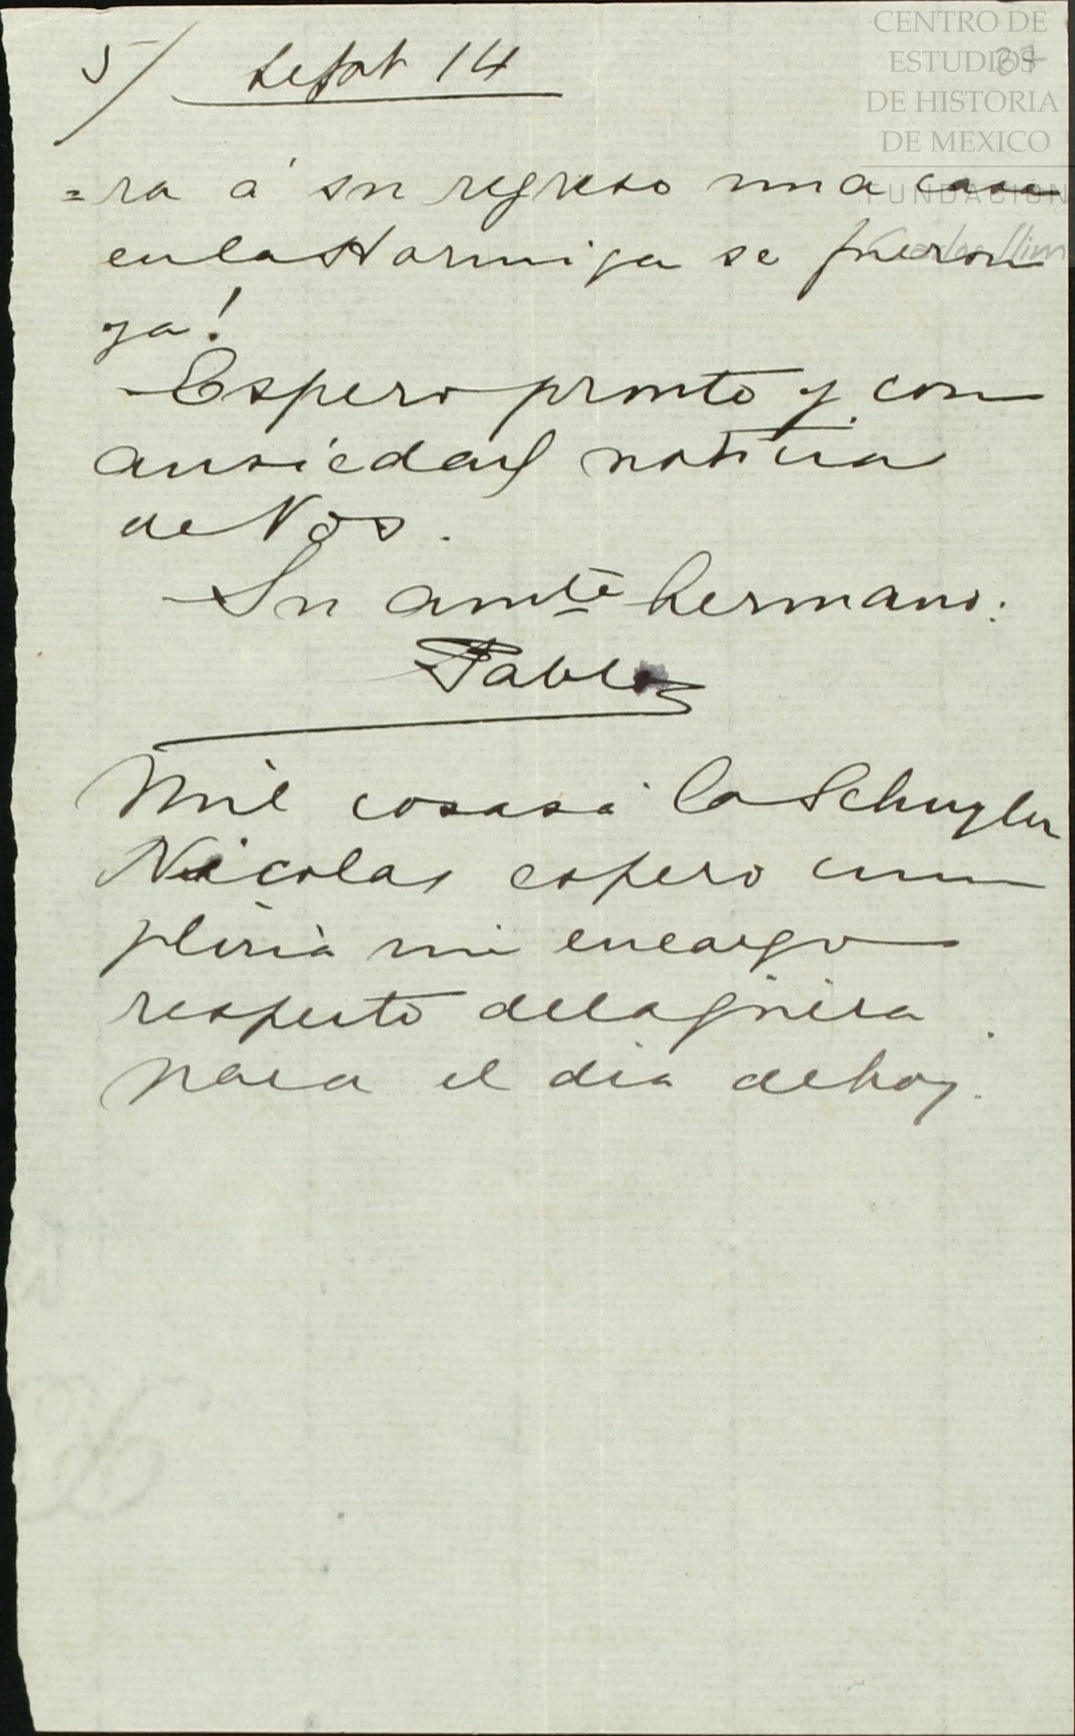 CENTRO DE
ESTUDIOS
DE HISTORIA
DE MEXICO
FUNDACIÓN
Carlos Slim
5/ Sept 14
=ra á su regreso una casa
en la Hormiga se fueron
ya!
Espero pronto y con
ansiedad noticia
de Vos.
Su amte hermano.
Pablo
Mil cosas á la Schuyler
Nicolas espero cum
pliria mi encargo
respecto de la
para el dia de hoy.